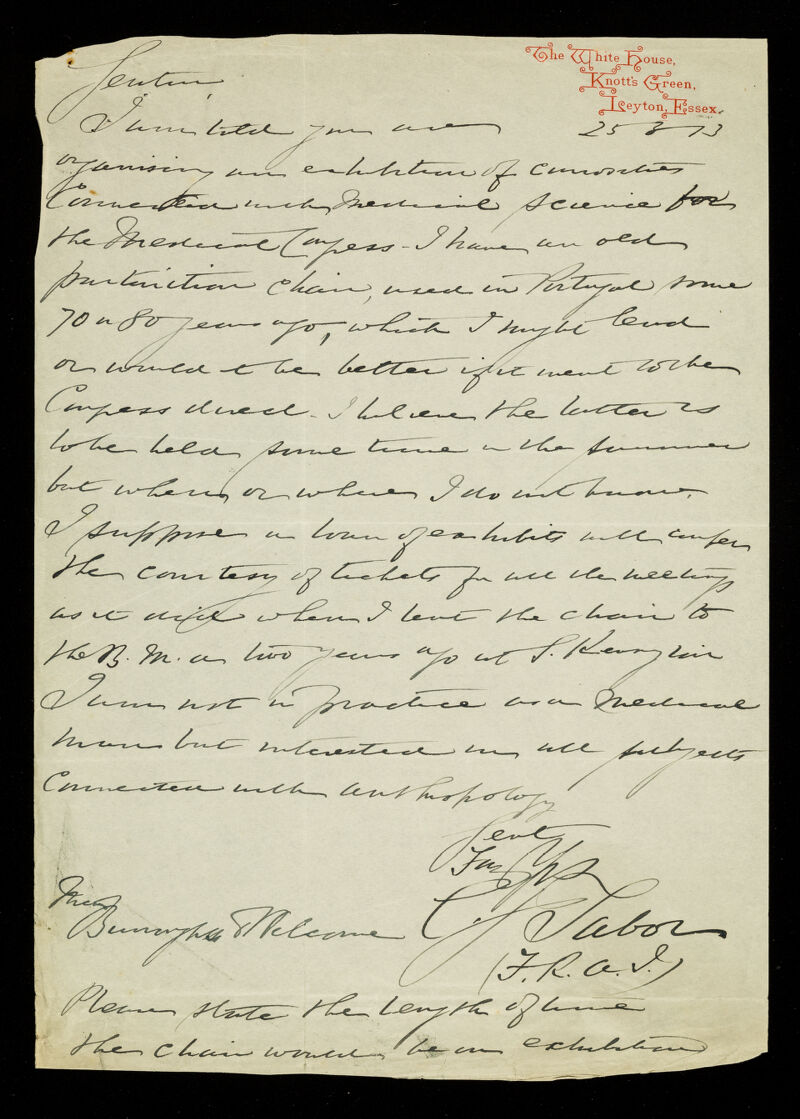 The White House,
Knott's Green,
Leyton, Essex.
25 3 13
Gentlmn,
I am told you are
organising an exhibition of curiosities
Connected with Medical Science for
the Medical Congress - I have an old
parturition chair, used in Portugal some
70 or 80 years ago, which I might lend
or would it be better if it went to the
Congress direct. I believe the latter is
to be held some time in the summer
but when or where I do not know.
I suppose a loan of exhibits will confer
the courtesy of tickets for all the meetings
as it did when I lent the chair to
the B. M. a two years ago at S. Kensington
I am not in practice as a Medical
man but interested in all subjects
connected with anthropology
Gent
Yrs
C J Tabor
(F. R. A. I.)
Burroughs & Wellcome
Please state the length of time
the chair would be on exhibition